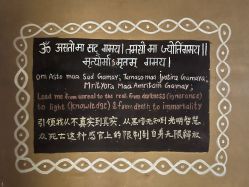 ॐ असतोमा सद् गमय। तमसोमा ज्योतिर्गमय।।
मृत्योर्माऽमृतम् गमय।
Om Asto maa Sud Gamay, Tamaso maa Jyotira Gamaya,
Mrityora Maa Amritam Gamay,
Lead me from unreal to the real, from darkness (ignorance)
to light (knowledge) & from death to immortality
引领我从不真实到真实、从黑暗无知到光明智慧、
从死亡这种感官上的限制到自身无限解放